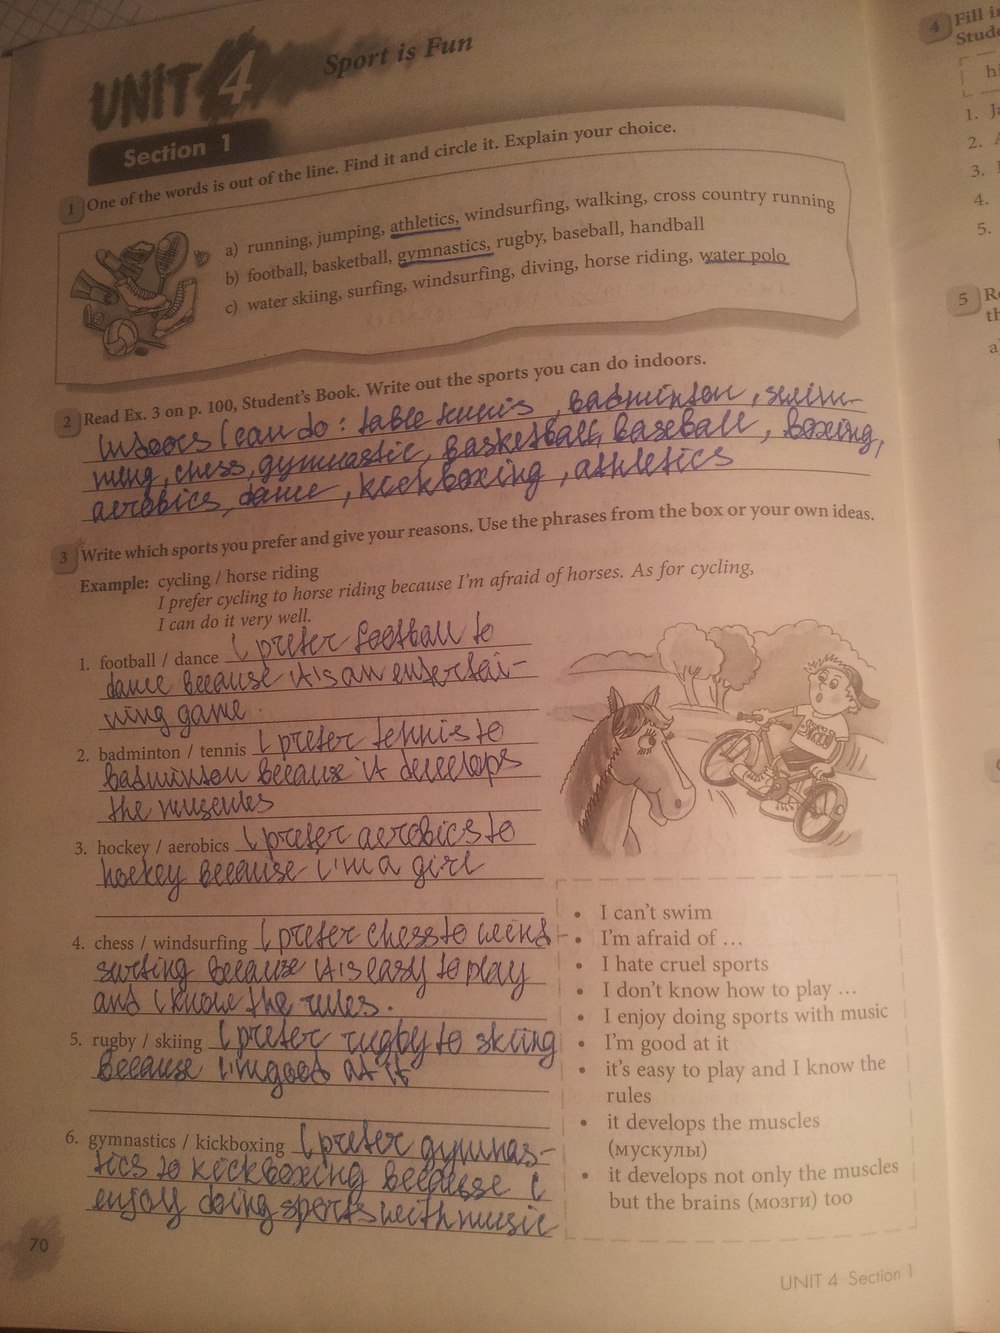 UNIT 4
Sport is Fun
Section 1
1 One of the words is out of the line. Find it and circle it. Explain your choice.
a) running, jumping, athletics, windsurfing, walking, cross country running
b) football, basketball, gymnastics, rugby, baseball, handball
c) water skiing, surfing, windsurfing, diving, horse riding, water polo
2 Read Ex. 3 on p. 100, Student's Book. Write out the sports you can do indoors.
Indoors I can do: table tennis, badminton, swim-
ming, chess, gymnastic, basketball, baseball, boxing,
aerobics, dance, kickboxing, athletics
3 Write which sports you prefer and give your reasons. Use the phrases from the box or your own ideas.
Example: cycling / horse riding
I prefer cycling to horse riding because I'm afraid of horses. As for cycling,
I can do it very well.
1. football / dance I prefer football to
dance because it's an entertai-
ning game.
2. badminton / tennis I prefer tennis to
badminton because it develops
the muscules
3. hockey / aerobics I prefer aerobics to
hockey because i'm a girl
4. chess / windsurfing I prefer chess to wind-
surfing because it is easy to play
and I know the rules.
5. rugby / skiing I prefer rugby to skiing
because I'm good at it
6. gymnastics / kickboxing I prefer gymnas-
tics to kickboxing because i
enjoy doing sports with music
• I can't swim
• I'm afraid of …
• I hate cruel sports
• I don't know how to play …
• I enjoy doing sports with music
• I'm good at it
• it's easy to play and I know the
rules
• it develops the muscles
(мускулы)
• it develops not only the muscles
but the brains (мозги) too
70
UNIT 4 Section 1
4 Fill
1.
2.
3.
4.
5.
5
a)